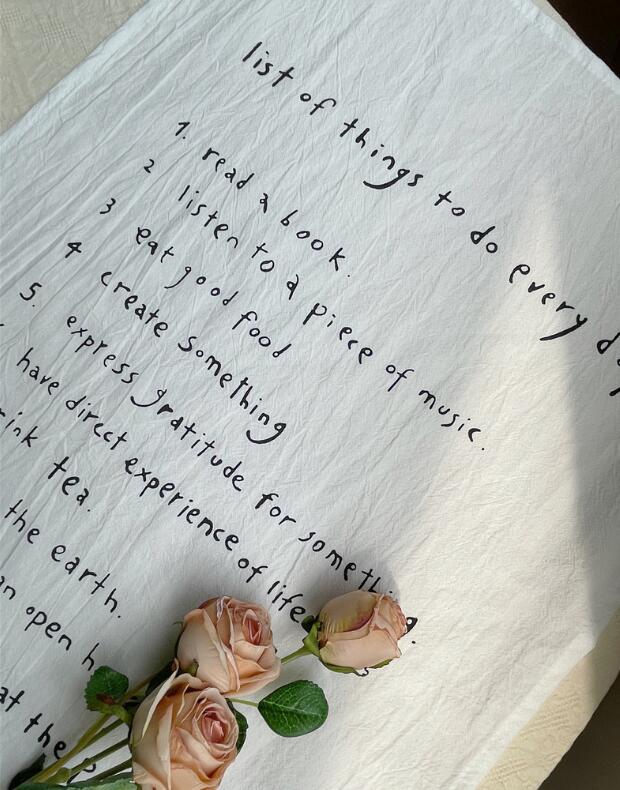 list of things to do every
1. read a book.
2 listen to a piece of music.
3 eat good food
4 create something
5. express gratitude for
have direct experience of life
tea.
the earth.
open
at the